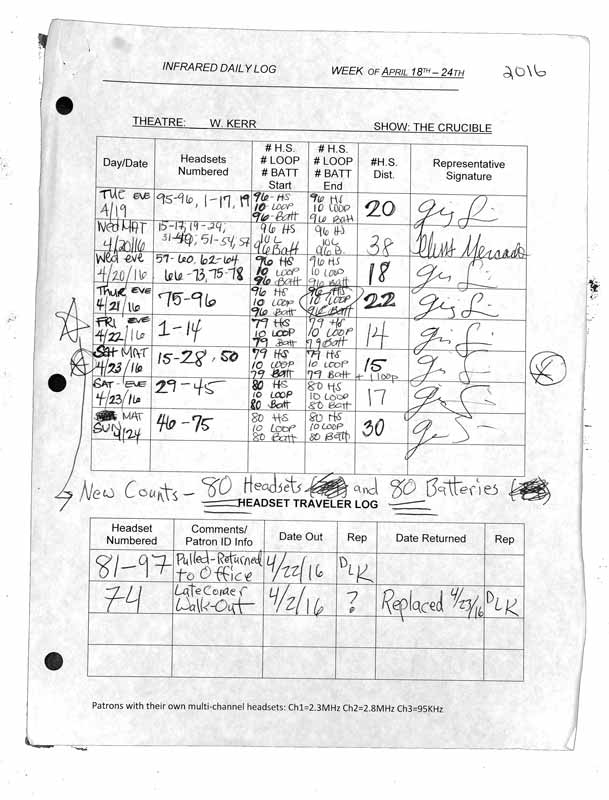 INFRARED DAILY LOG WEEK OF APRIL 18TH – 24TH 2016
THEATRE: W. KERR SHOW: THE CRUCIBLE
Day/Date Headsets Numbered # H.S. # LOOP # BATT Start # H.S. # LOOP # BATT End #H.S. Dist. Representative Signature
TUE EVE 4/19 95-96, 1-17, 19 96 HS 10 LOOP 96 Batt 96 HS 10 LOOP 96 Batt 20
Wed MAT 4/20/16 15-17, 19-24, 51-54, 57 96 HS 10 L 96 Batt 96 HS 10 L 96 B. 38 Mercado
Wed eve 4/20/16 57-60, 62-64 66-73, 75-78 96 HS 10 LOOP 96 Batt 96 HS 10 LOOP 96 Batt 18
Thur EVE 4/21/16 75-96 96 HS 10 LOOP 96 Batt 96 HS 10 LOOP 96 Batt 22
FRI EVE 4/22/16 1-14 79 HS 10 LOOP 79 Batt 79 HS 10 LOOP 79 Batt 14
Sat MAT 4/23/16 15-28, 50 79 HS 10 LOOP 79 Batt 79 HS 10 LOOP 79 Batt 15 + 1 loop
SAT EVE 4/23/16 29-45 80 HS 10 LOOP 80 Batt 80 HS 10 LOOP 80 Batt 17
MAT SUN 4/24 46-75 80 HS 10 LOOP 80 Batt 80 HS 10 LOOP 80 Batt 30
New Counts - 80 Headsets and 80 Batteries
HEADSET TRAVELER LOG
Headset Numbered Comments/ Patron ID Info Date Out Rep Date Returned Rep
81-97 Pulled-Returned to Office 4/22/16 DLK
74 LateComer Walk-Out 4/2/16 ? Replaced 4/23/16 DLK
Patrons with their own multi-channel headsets: Ch1=2.3MHz Ch2=2.8MHz Ch3=95KHz